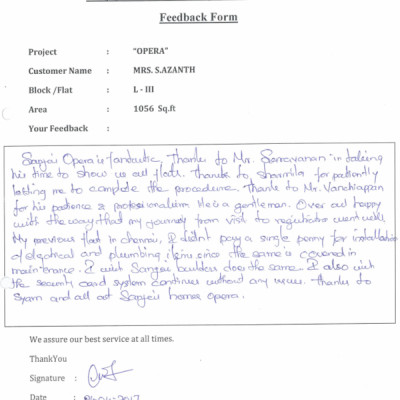 Feedback Form
Project : "OPERA"
Customer Name : MRS. S.AZANTH
Block /Flat : L - III
Area : 1056 Sq.ft
Your Feedback :
Sanjai Opera is fantastic, Thanks to Mr. Saravanan in taking
his time to show us all flats. Thanks to Sharmila for patiently
me to complete the procedure. Thanks to Mr. Vanchiappan
for his patience & professionalism. He is a gentleman. Over all happy
with the way that my journey from visit to registration went with.
My previous flat in chennai, I didn't pay a single penny for installation
of electrical and plumbing items since the same is covered in
maintenance. I wish builders does the same. I also wish
the security card system continues without any issues. Thanks to
Syam and all at homes opera.
We assure our best service at all times.
ThankYou
Signature :
Date :